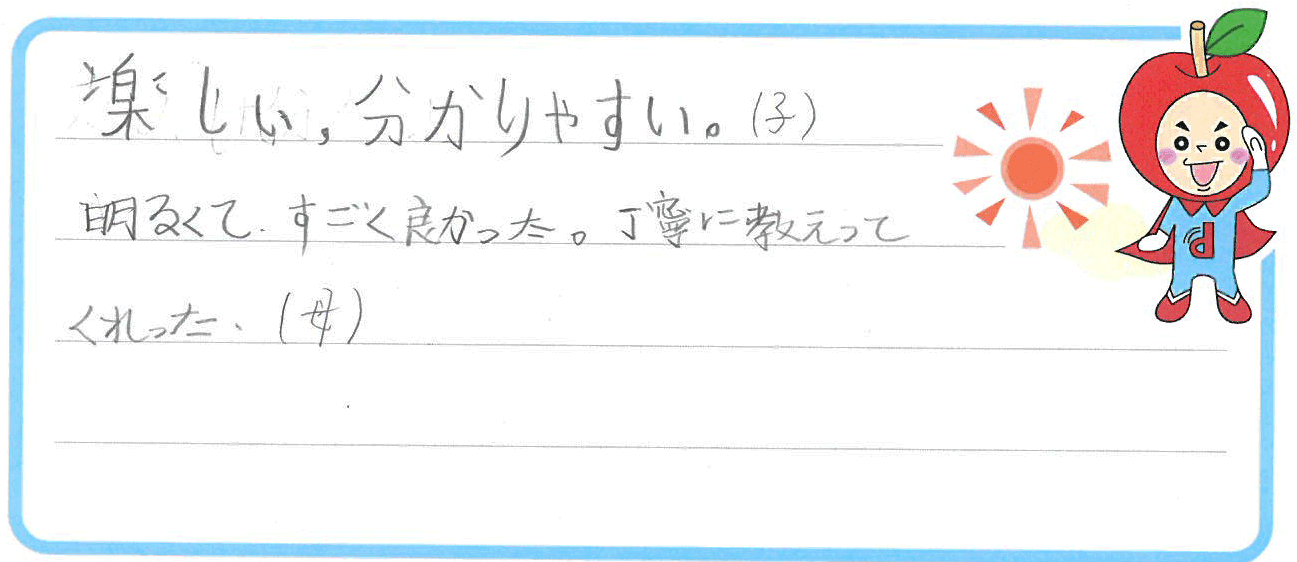 楽しい,分かりやすい。(子)
明るくて.すごく良かった。丁寧に教えって
くれった、(母)